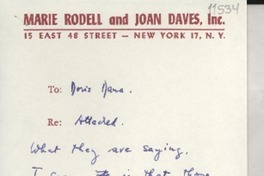 11534
MARIE RODELL and JOAN DAVES, Inc.
15 EAST 48 STREET — NEW YORK 17, N. Y.
To: Doris Dana.
Re: Attached.
What they are saying,
I is that those